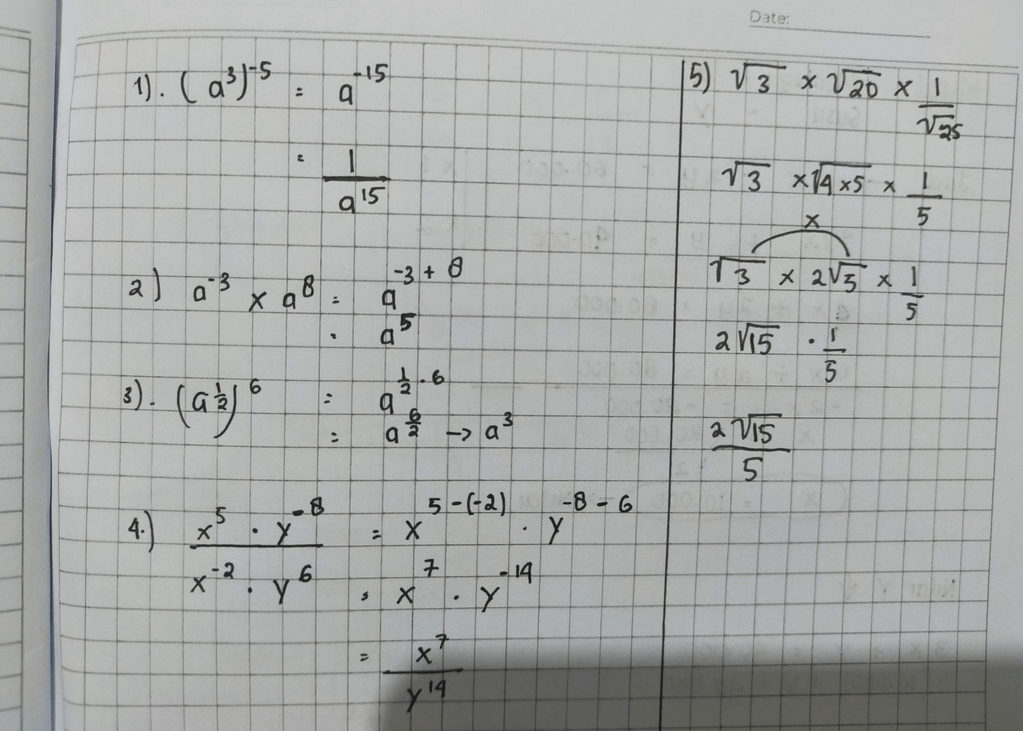 Date:
1). (a³)⁻⁵ = a⁻¹⁵
= 1/a¹⁵
2) a⁻³ x a⁸ = a⁻³ ⁺ ⁸
= a⁵
3). (a^½)⁶ = a^(½ · 6)
= a^(6/2) → a³
4.) (x⁵ · y⁻⁸)/(x⁻² · y⁶) = x^(5-(-2)) · y^(-8-6)
= x⁷ · y⁻¹⁴
= x⁷/y¹⁴
5) √3 x √20 x 1/√25
√3 x √(4x5) x 1/5
x
√3 x 2√5 x 1/5
2√15 · 1/5
2√15/5